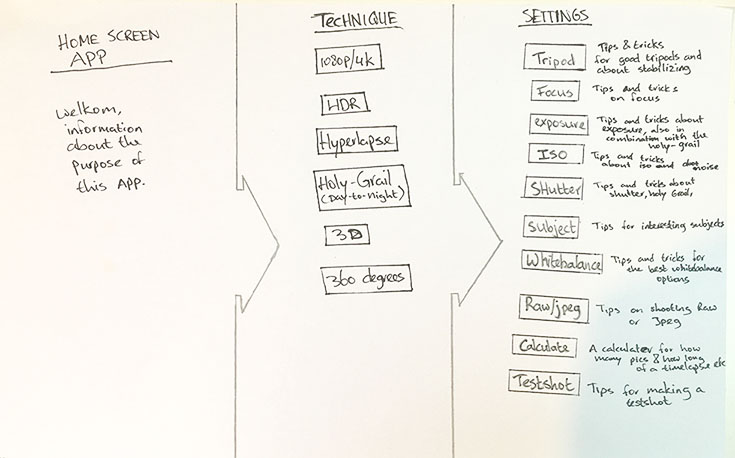 HOME SCREEN
APP
Welkom,
information
about the
purpose of
this APP.
TECHNIQUE
1080p/4k
HDR
Hyperlapse
Holy-Grail
(Day-to-night)
3D
360 degrees
SETTINGS
Tripod
Tips & tricks
for good tripods and
about stabilizing
Focus
Tips and tricks
on focus
exposure
Tips and tricks about
exposure, also in
combination with the
holy-grail
ISO
Tips and tricks
about iso and noise
SHutter
Tips and tricks about
shutter, holy Grail,
Subject
Tips for interesting subjects
Whitebalance
Tips and tricks for
the best whitebalance
options
Raw/jpeg
Tips on shooting Raw
or Jpeg
Calculate
A calculater for how
many pics & how long
of a timelapse etc
Testshot
Tips for making a
testshot